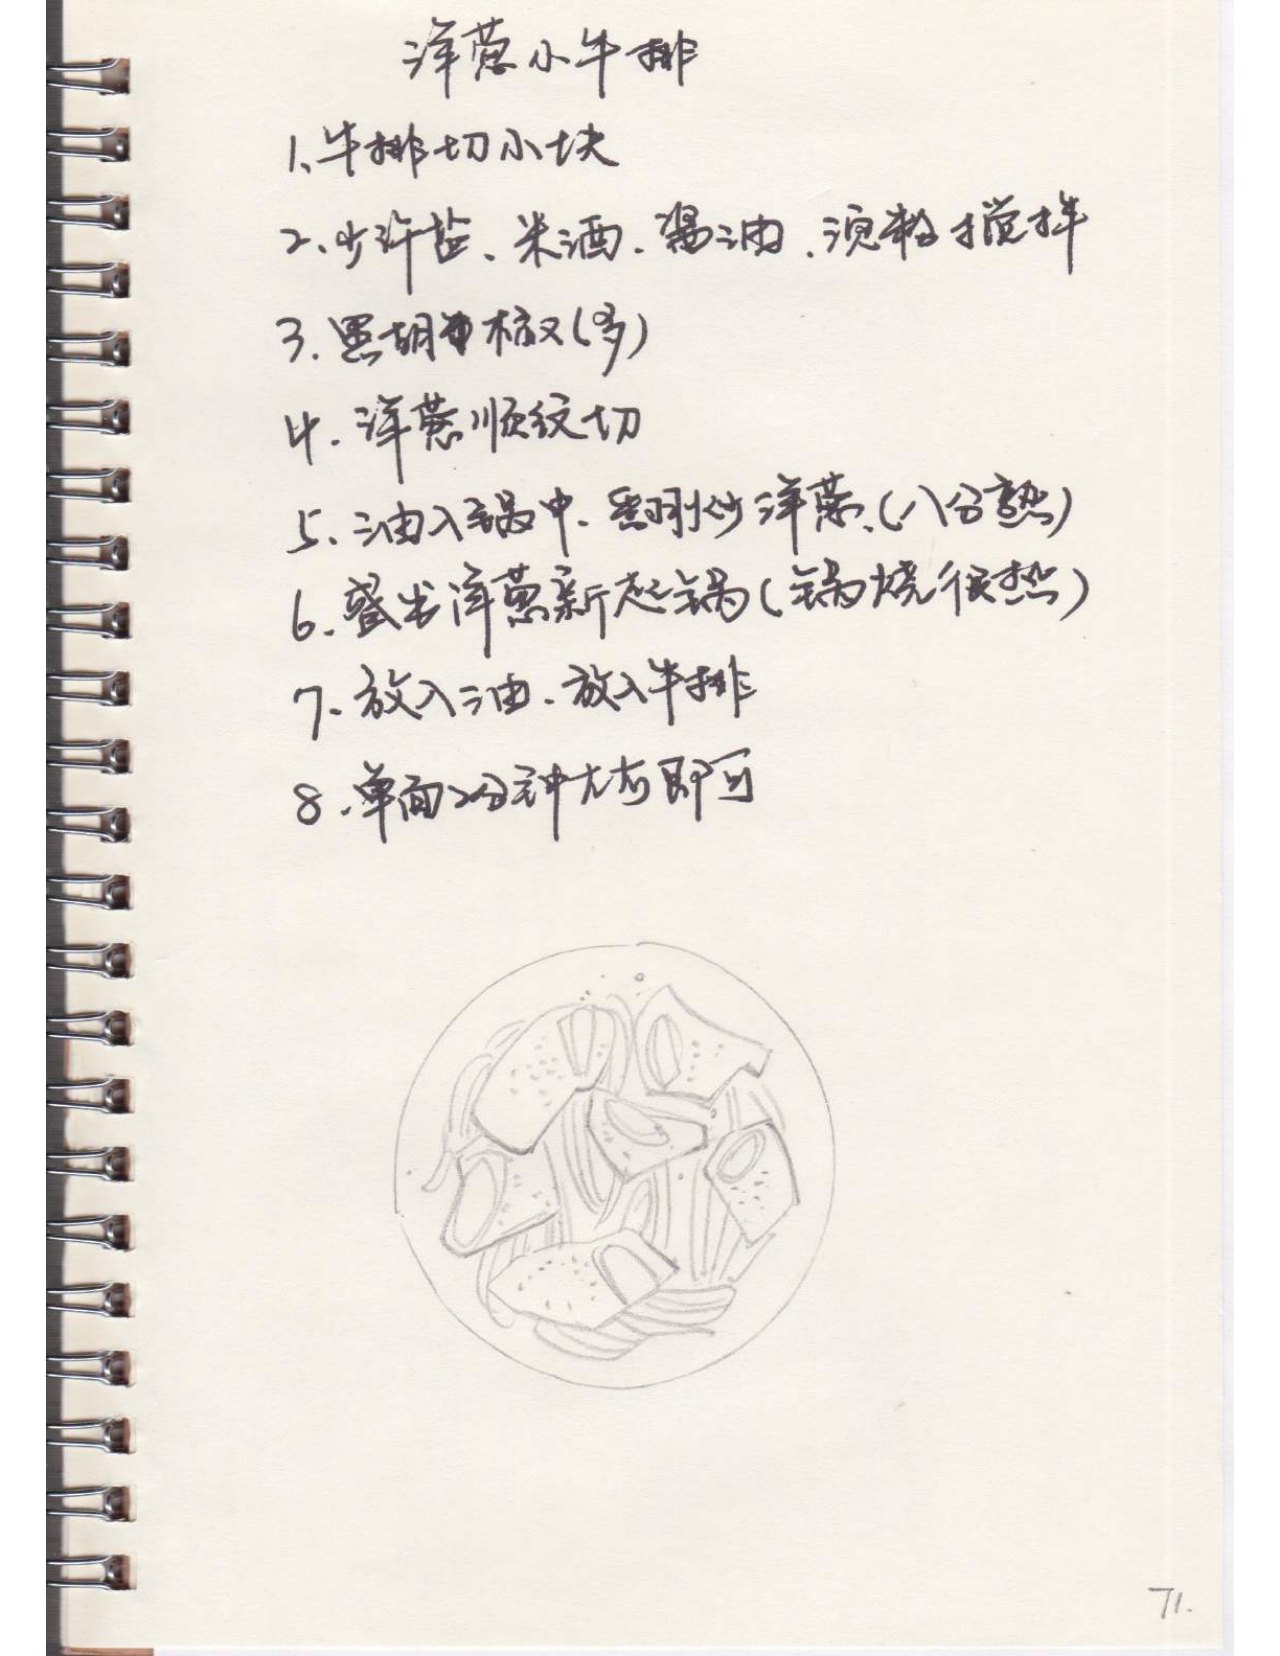 洋葱小牛排
1、牛排切小块
2、少许盐、米酒、酱油、淀粉搅拌
3、黑胡椒(多)
4、洋葱顺纹切
5、油入锅中、翻炒洋葱、(八分熟)
6、盛出洋葱新起锅(锅烧很热)
7、放入油、放入牛排
8、单面2分钟左右即可
71.